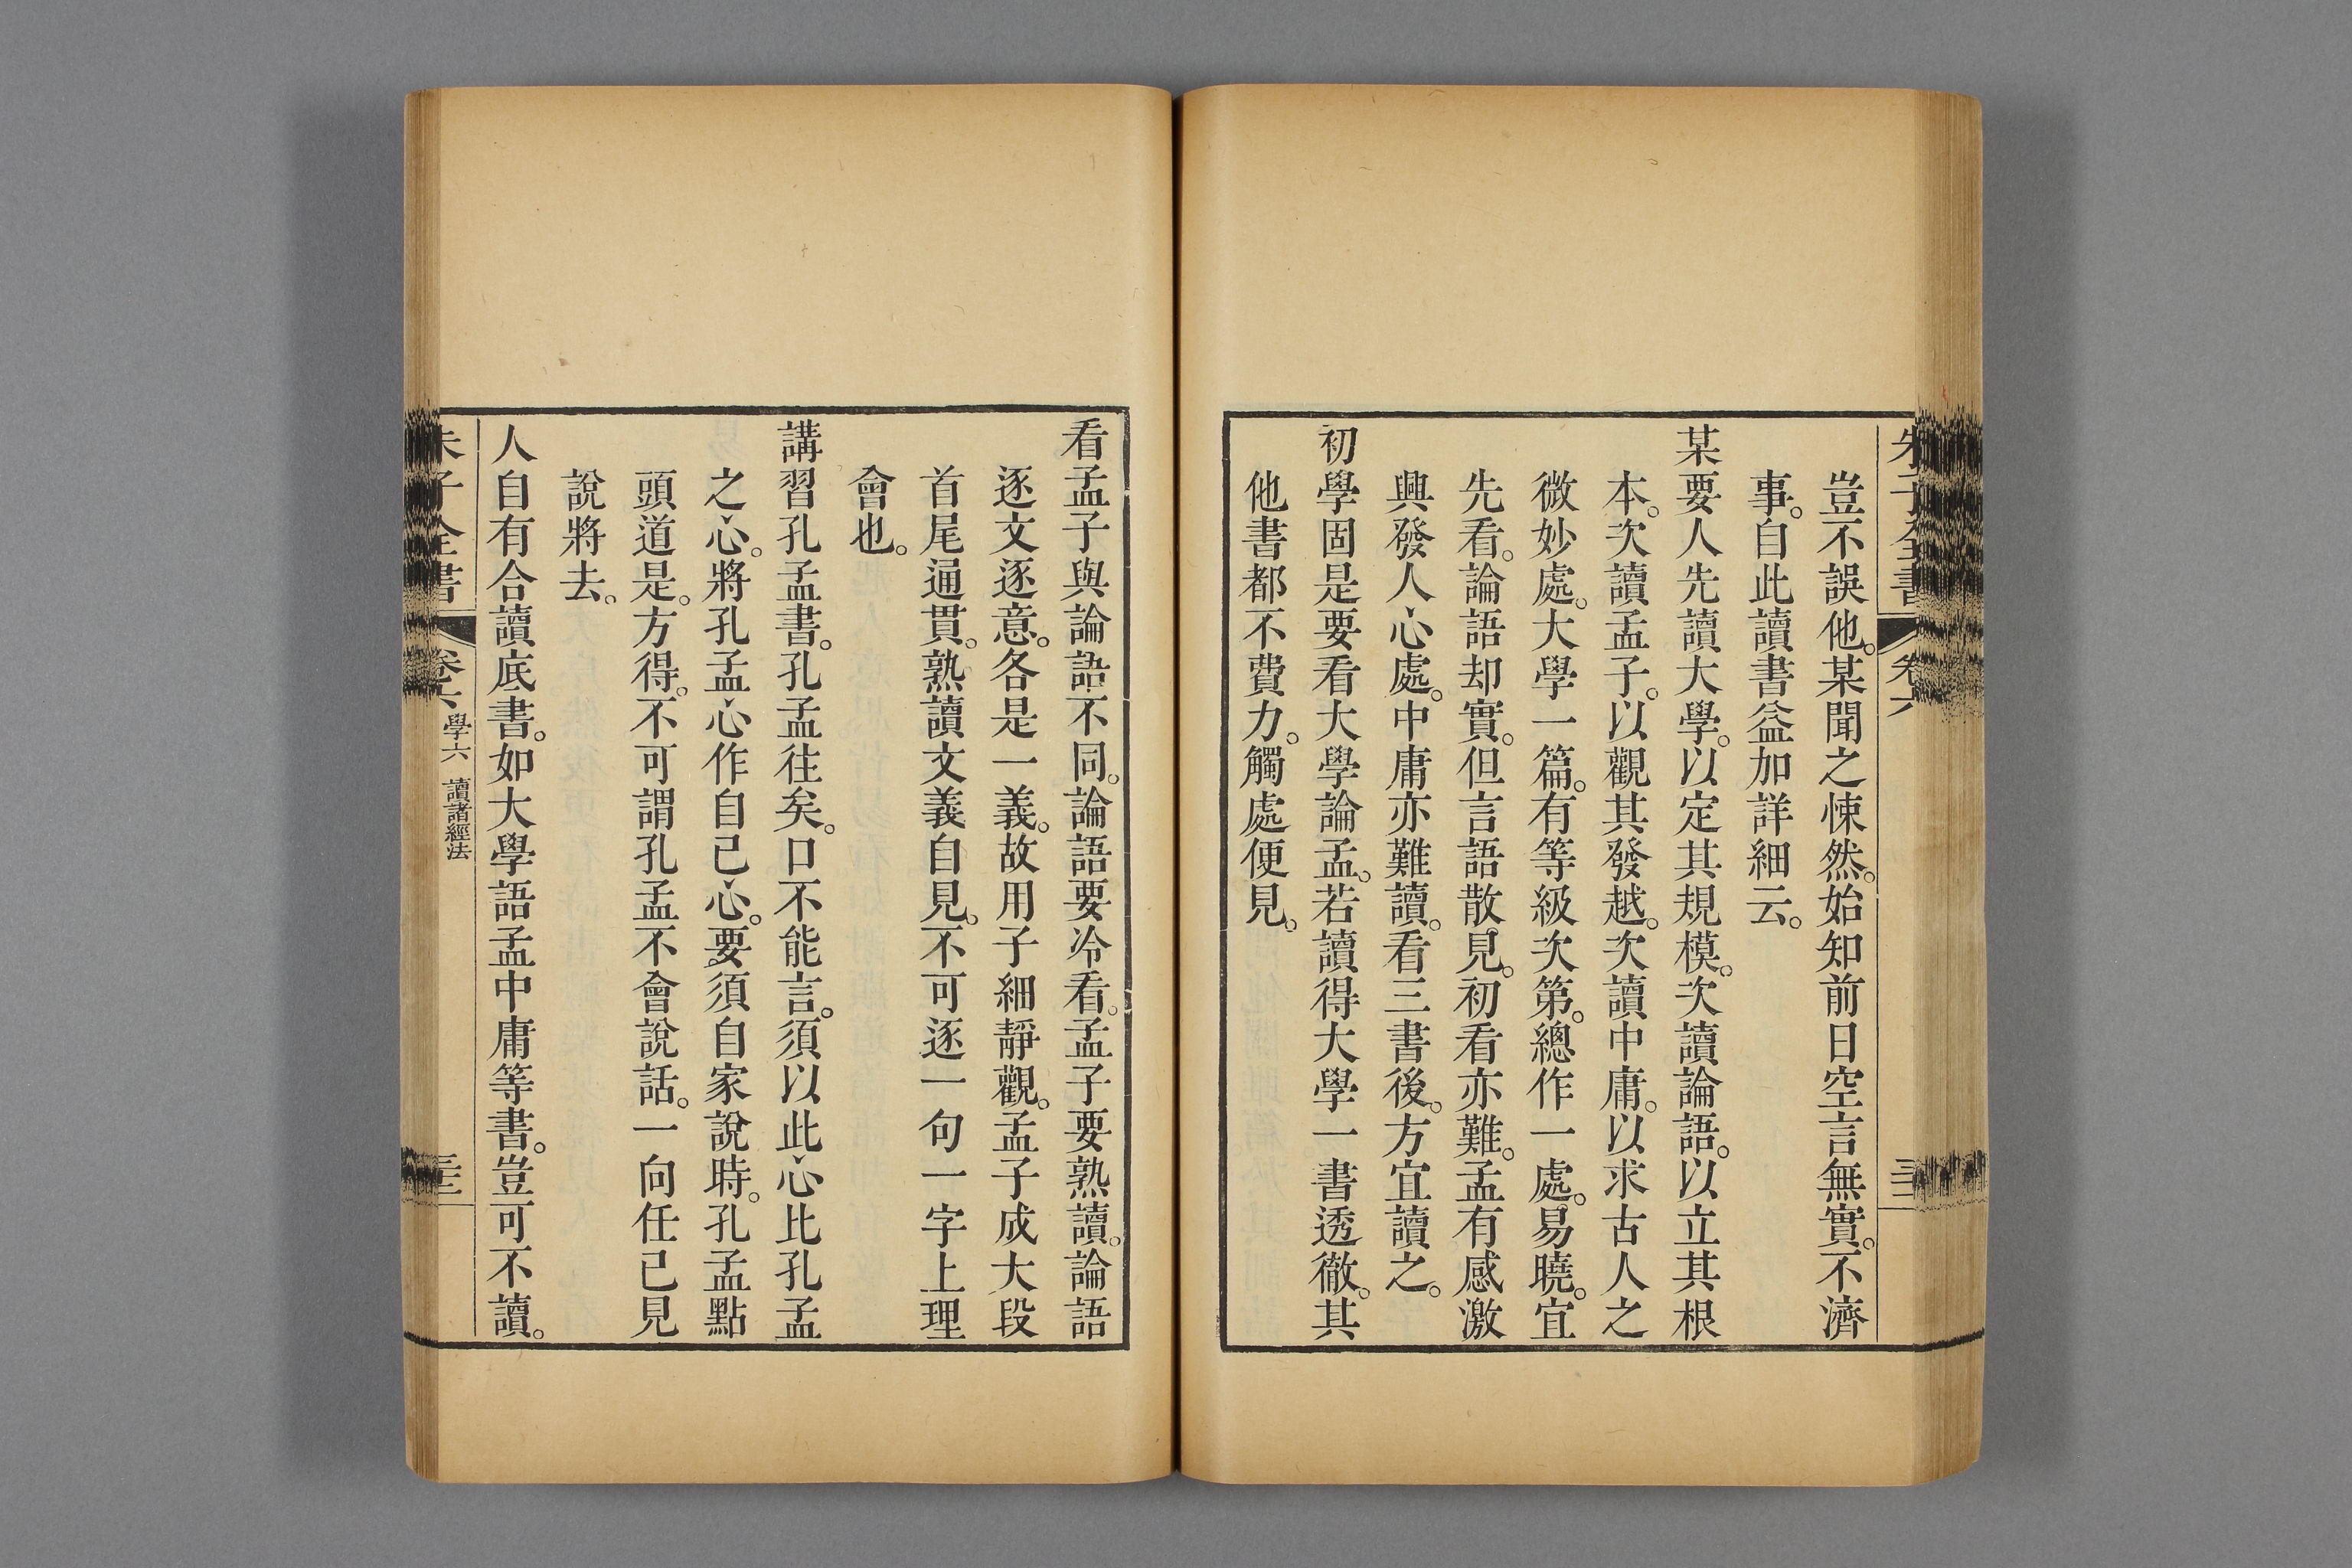 豈不誤他。某聞之悚然。始知前日空言無實。不濟
事。自此讀書益加詳細云。
某要人先讀大學。以定其規模。次讀論語。以立其根
本。次讀孟子。以觀其發越。次讀中庸。以求古人之
微妙處。大學一篇。有等級次第。總作一處。易曉。宜
先看。論語却實。但言語散見。初看亦難。孟有感激
興發人心處。中庸亦難讀。看三書後。方宜讀之。
初學固是要看大學論孟。若讀得大學一書透徹。其
他書都不費力。觸處便見。
看孟子與論語不同。論語要冷看。孟子要熟讀。論語
逐文逐意。各是一義。故用子細靜觀。孟子成大段
首尾通貫。熟讀文義自見。不可逐一句一字上理
會也。
講習孔孟書。孔孟往矣。口不能言。須以此心比孔孟
之心。將孔孟心作自己心。要須自家說時。孔孟點
頭道是。方得。不可謂孔孟不會說話。一向任己見
說將去。
人自有合讀底書。如大學語孟中庸等書。豈可不讀。
朱子全書 卷六 學六 讀諸經法